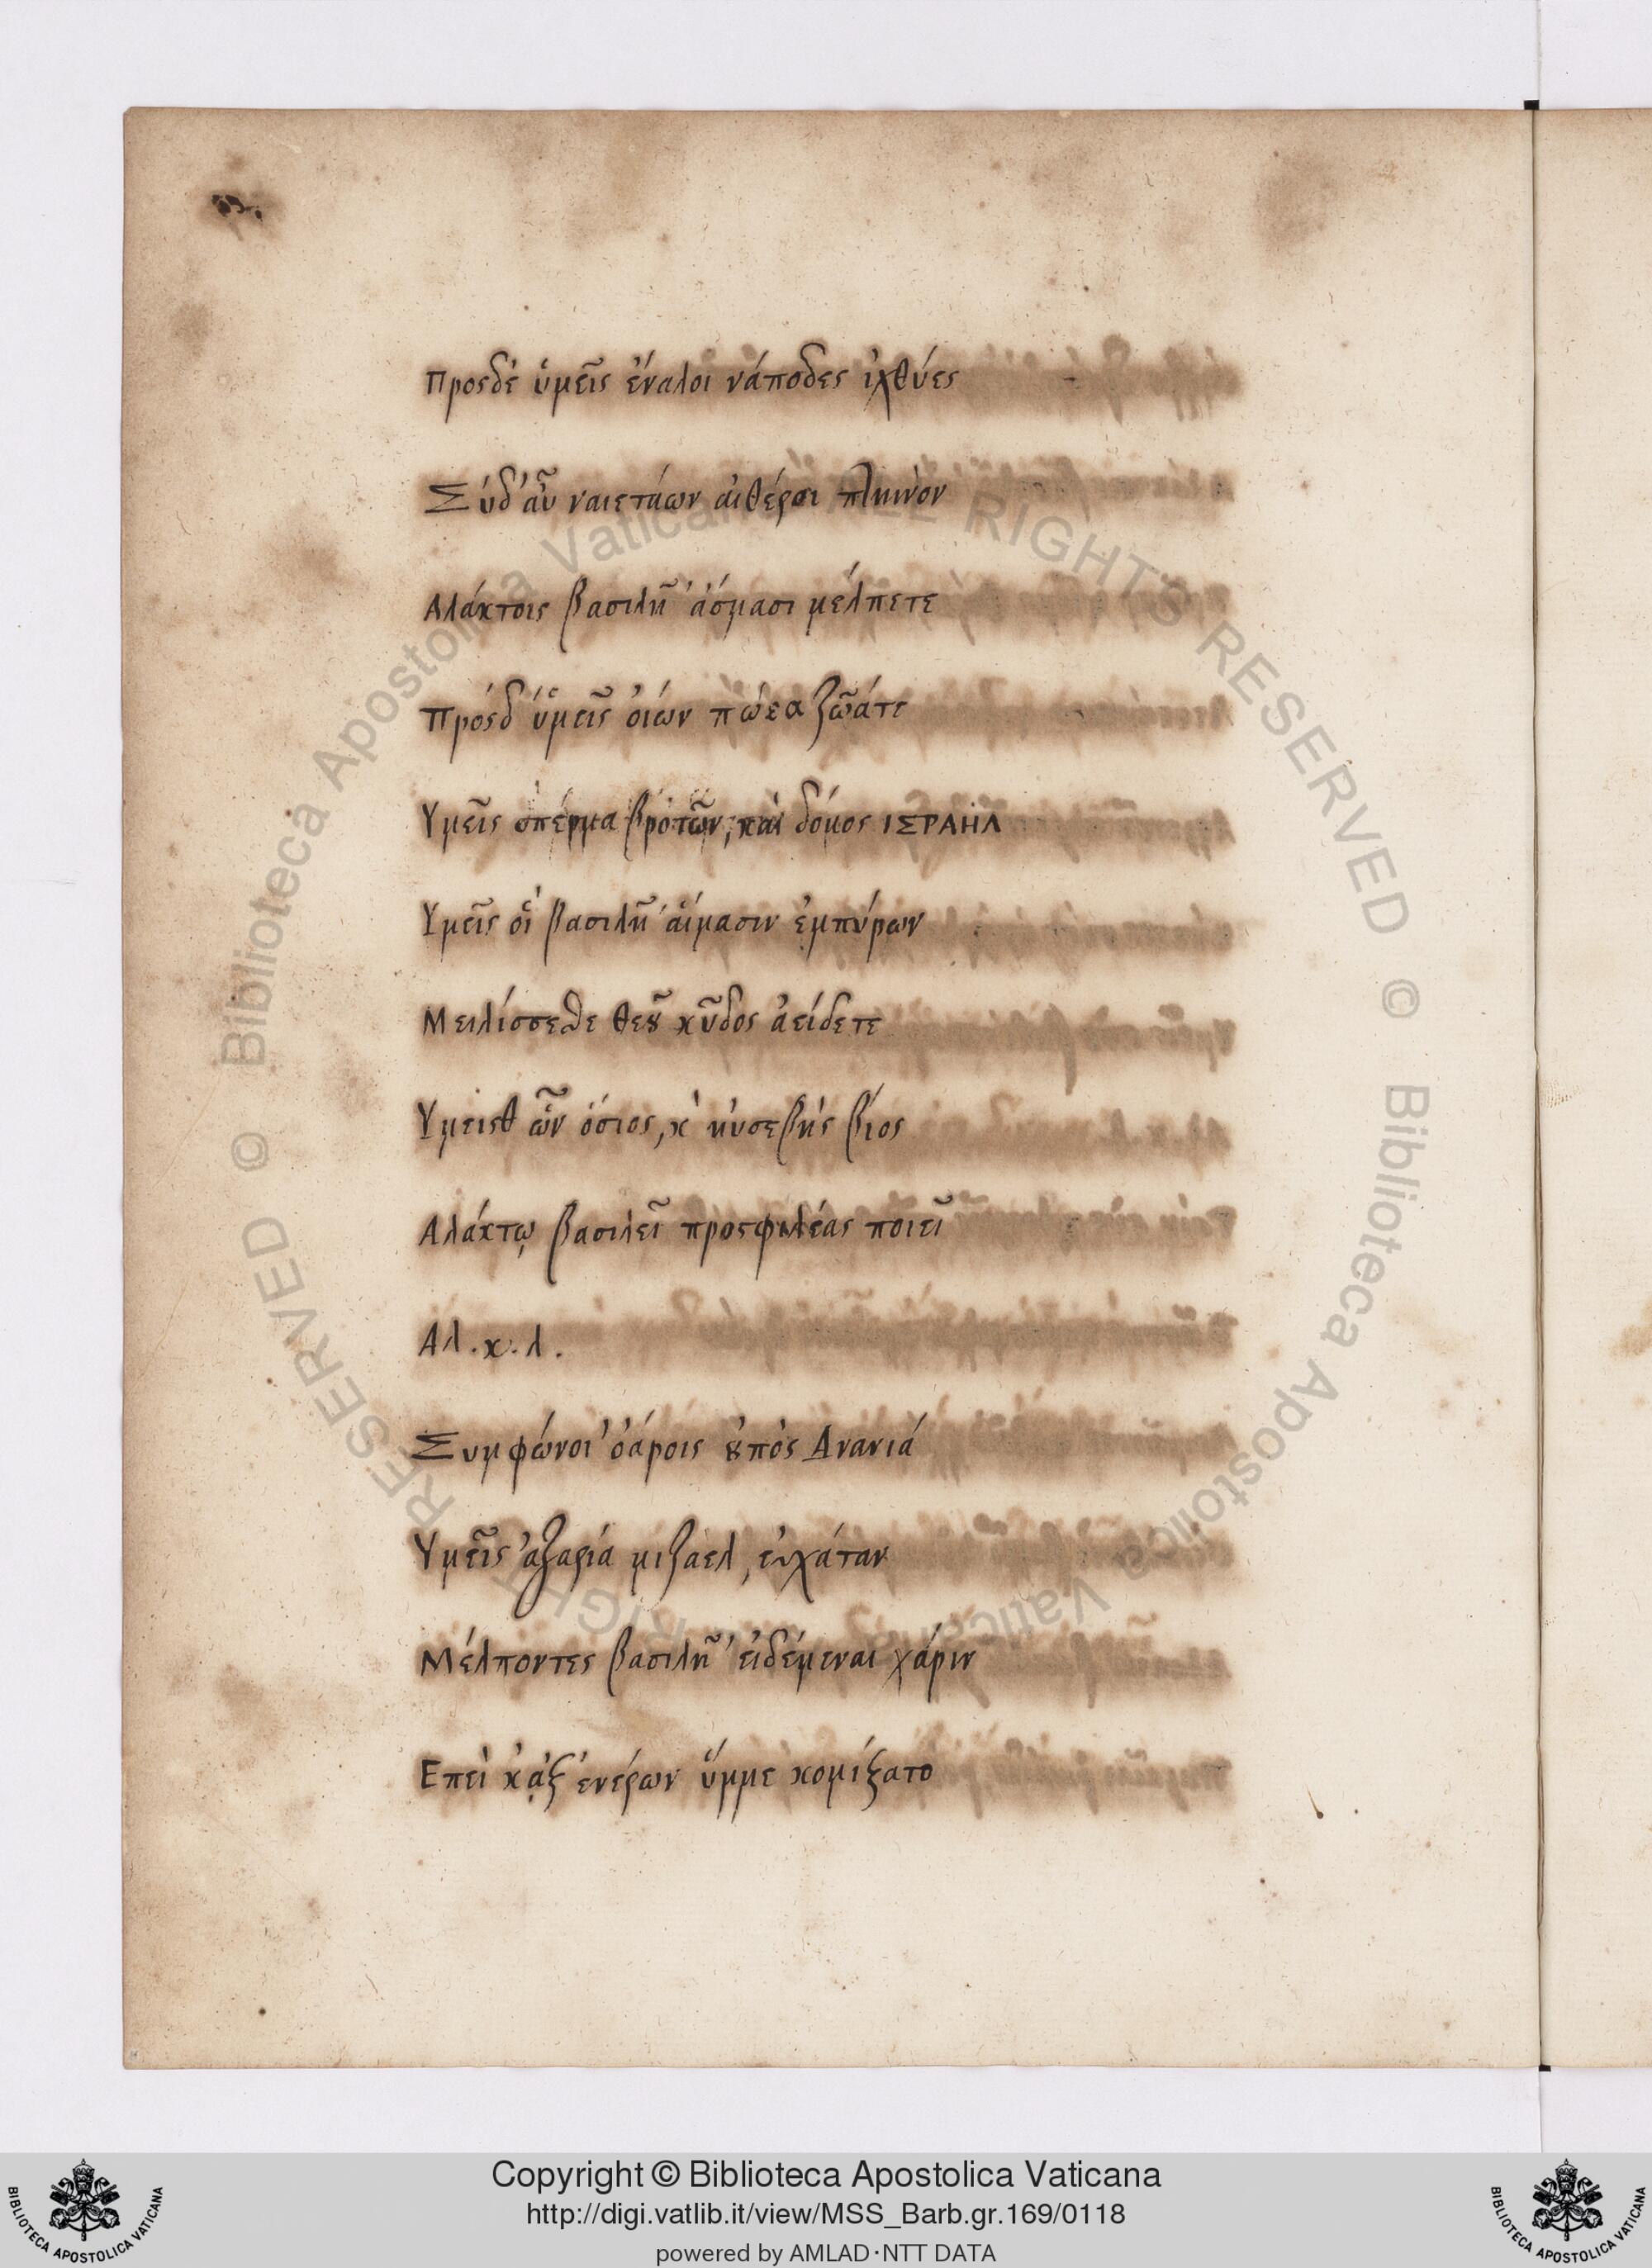 Προςδὲ ὑμεῖς ἐναλοι νάποδες ἰχθύες
Σύδ' αὖ ναιετάων αἰθέρσι πληνὸν
Αλάκτοις βασιλῆ' ἀσμασι μέλπετε
Πρόςδ' ὑμεῖς ὀιών πώεα ζῶάτε
Υμεῖς σπέρμα βροτῶν, καὶ δόμος ΙΣΡΑΗΛ
Υμεῖς οἱ βασιλῆ' αἵμασιν ἐμπύρων
Μειλίσσεσθε θεȣ͂ κῦδος ἀείδετε
Υμεισθ ὧν ὁσιος, κ̀ ηὐσεβὴς βίος
Αλάκτῳ βασιλεῖ προσφιλέας ποιεῖ
Αλ.κ.λ.
Συμφώνοι' ὀάροις Ανανιά
Υμεῖς ἀζαρία μιζαελ, εὐχάταν
Μέλποντες βασιλῆ' εἰδέμεναι χάριν
Επεὶ κᾀξ ἐνέρων ὔμμε κομίξατο
Biblioteca Apostolica Vaticana © ALL RIGHTS RESERVED © Biblioteca Apostolica Vaticana © ALL RIGHTS RESERVED ©
Copyright © Biblioteca Apostolica Vaticana
http://digi.vatlib.it/view/MSS_Barb.gr.169/0118
powered by AMLAD·NTT DATA
BIBLIOTECA APOSTOLICA VATICANA
BIBLIOTECA APOSTOLICA VATICANA